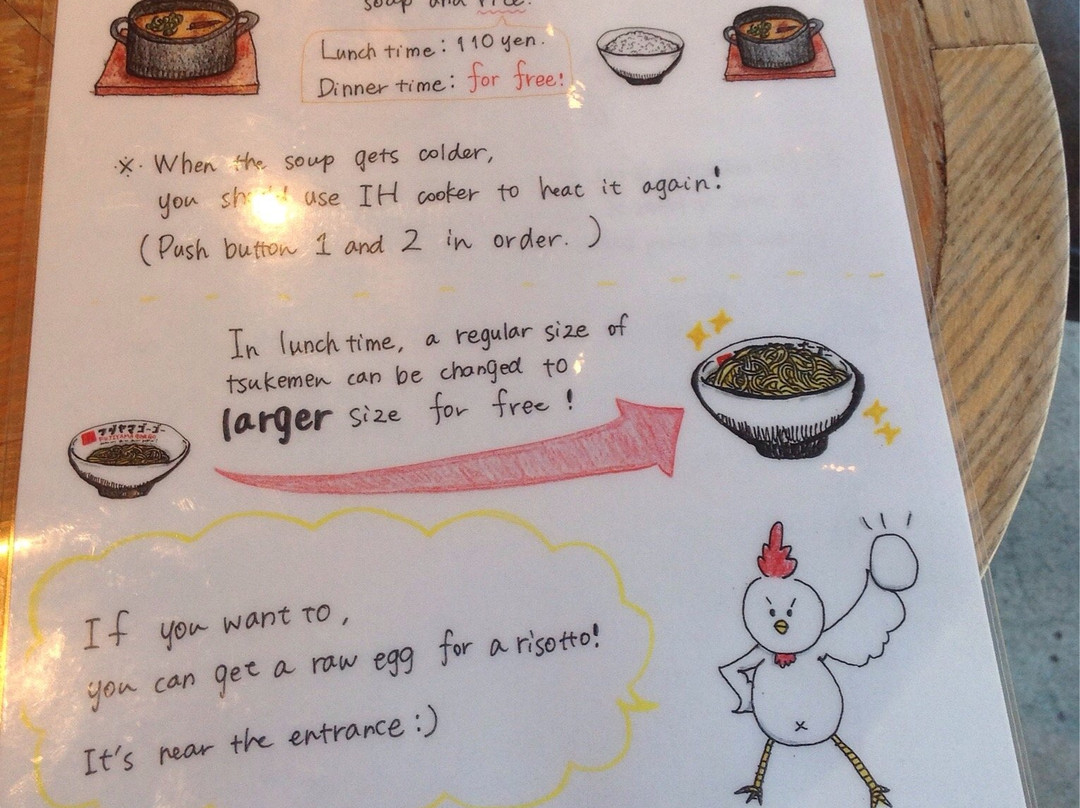 soup and rice.
Lunch time : 110 yen.
Dinner time : for free!
※ When the soup gets colder,
you should use IH cooker to heat it again!
(Push button 1 and 2 in order. )
In lunch time, a regular size of
tsukemen can be changed to
larger size for free !
フジヤマゴーゴー
FUJIYAMA GO GO
If you want to,
you can get a raw egg for a risotto!
It's near the entrance :)